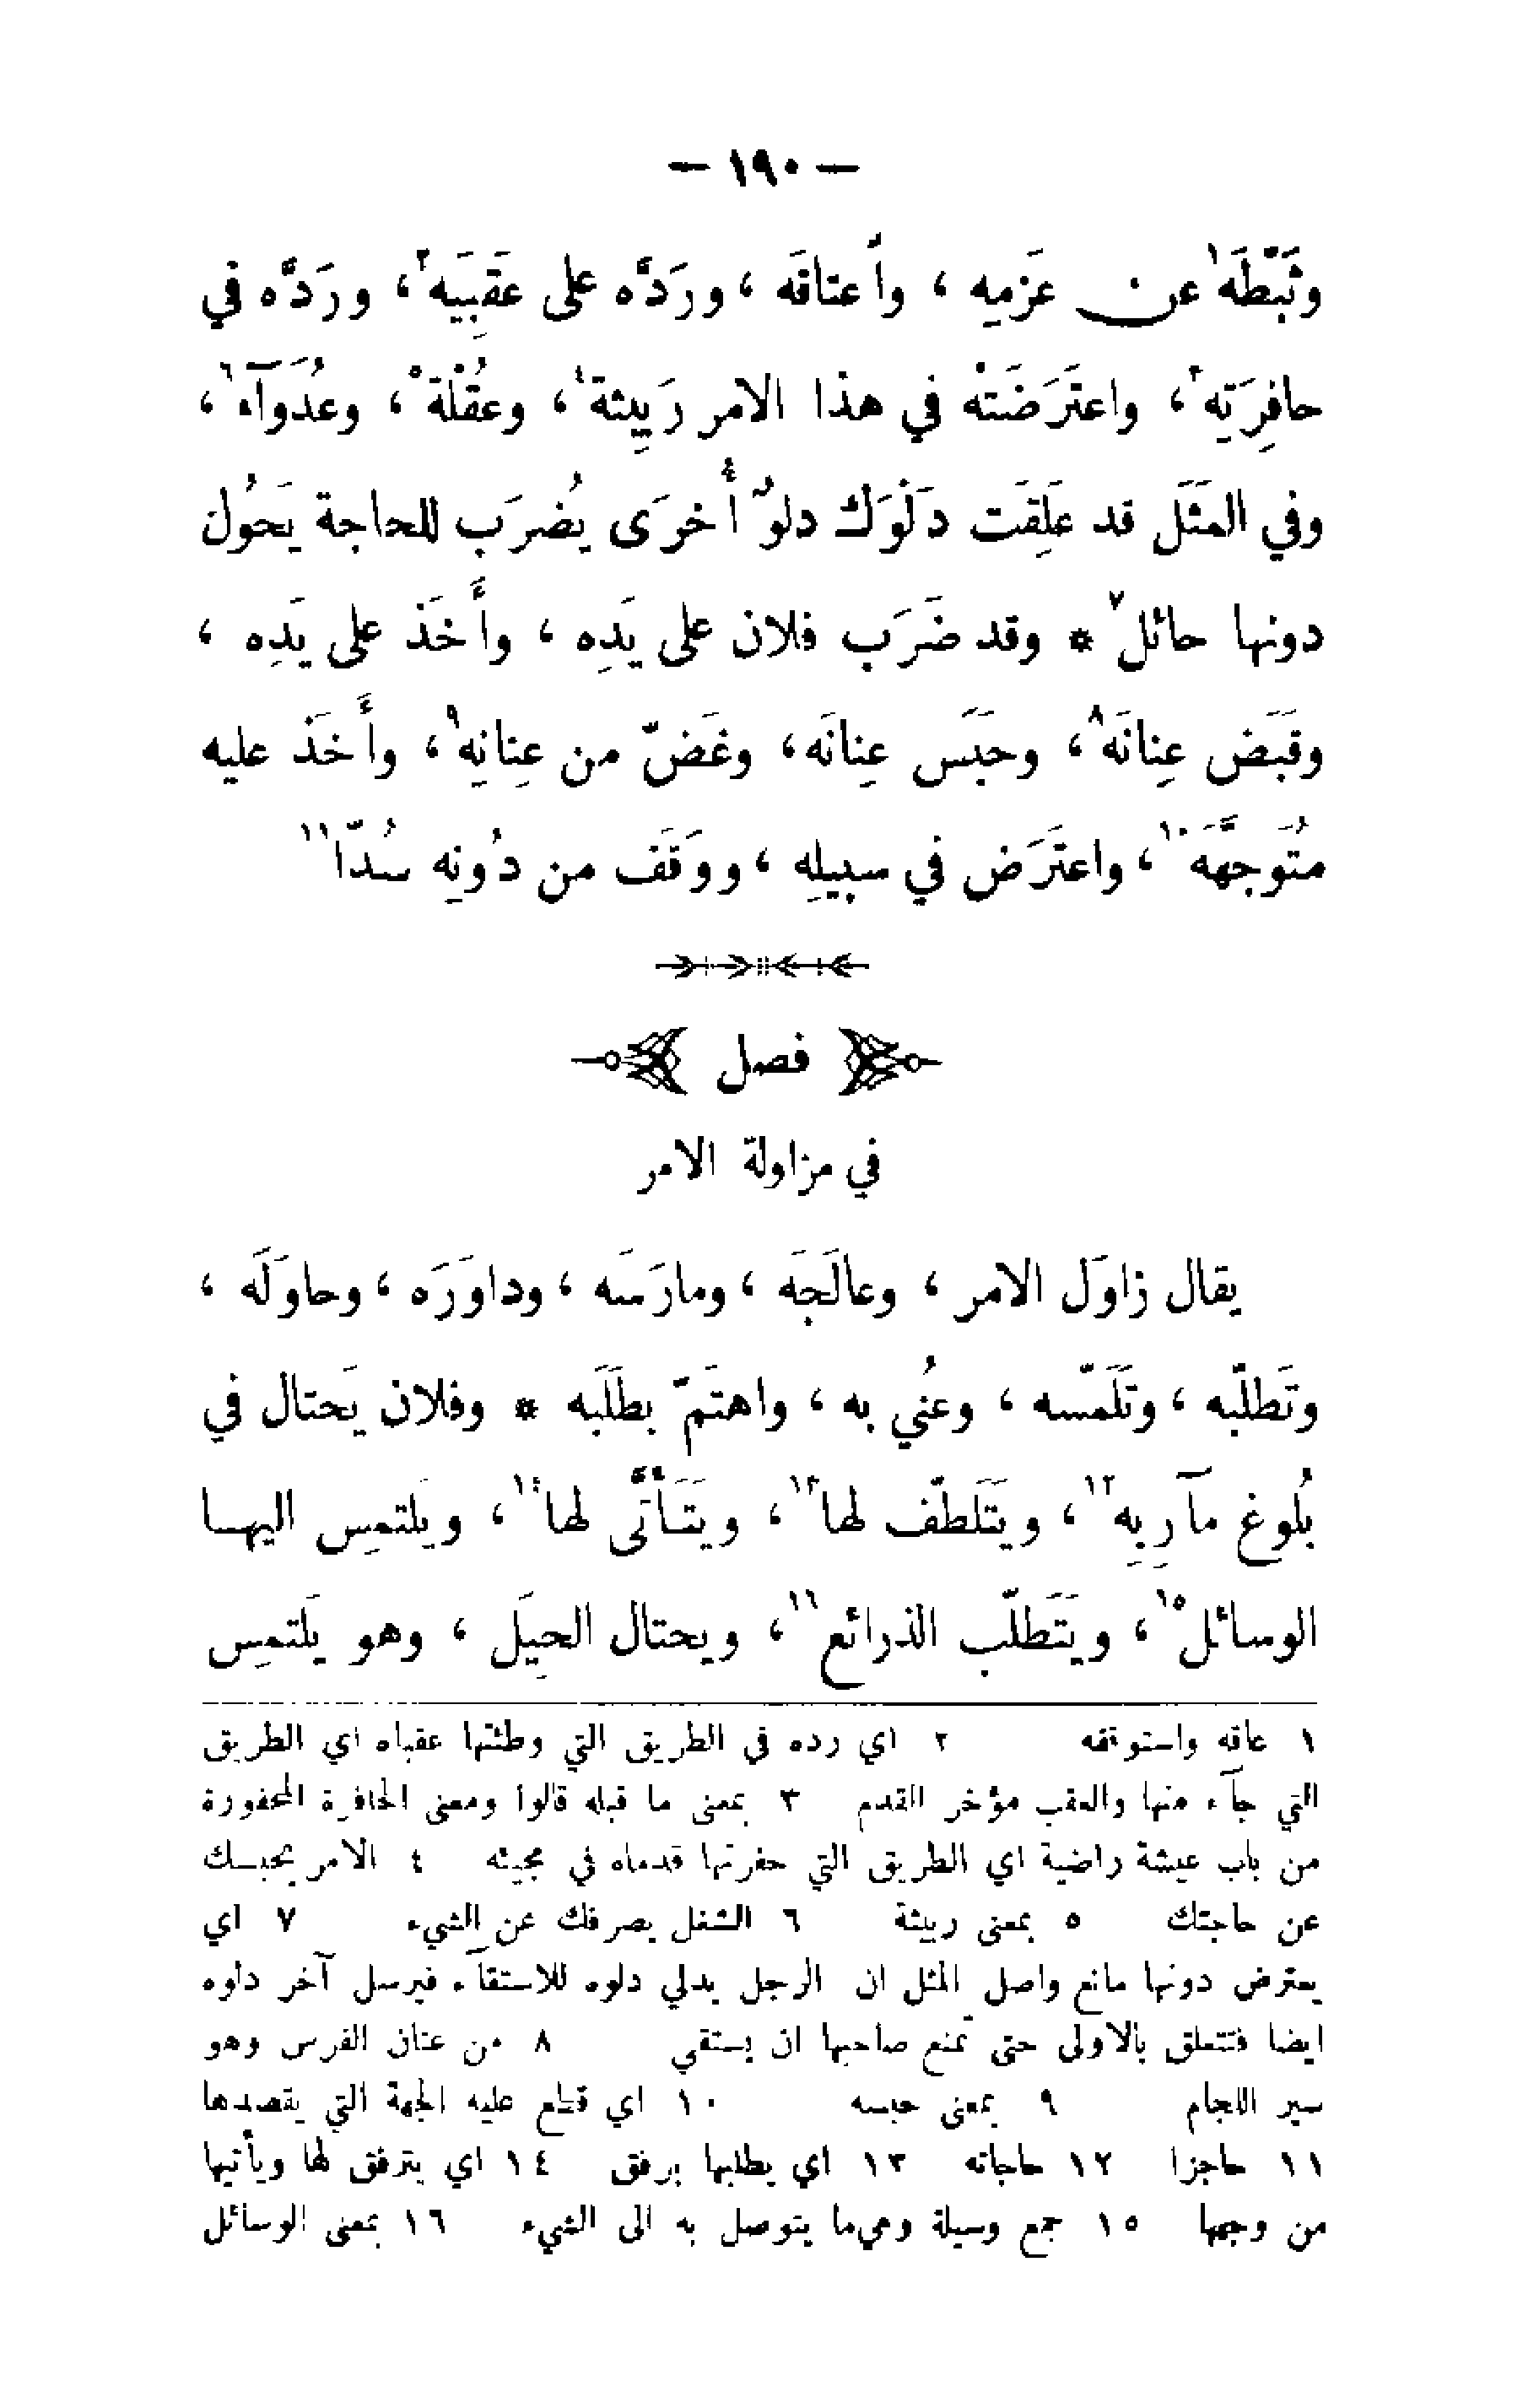 — ١٩٠ —
وثَبَّطَهُ١ عن عَزمِهِ ، واُعتاقَه ، ورَدَّه على عَقِبَيه٢ ، ورَدَّه في
حافِرَتِه٣ ، واعتَرَضَتْه في هذا الامر رَبِيثة٤ ، وعُقْلة٥ ، وعُدَوآء٦ ،
وفي المَثَل قد عَلِقَت دَلْوَك دلوٌ أُخرَى يُضرَب للحاجة يَحُول
دونها حائل٧ * وقد ضَرَب فلان على يَدِه ، وأَخَذ على يَدِه ،
وقَبَض عِنانَه٨ ، وحَبَس عِنانَه ، وغَضّ من عِنانِه٩ ، وأَخَذ عليه
مُتَوَجَّهَه١٠ ، واعتَرَض في سبيلِه ، ووَقَف من دُونِه سُدّا١١
فصل
في مزاولة الامر
يقال زاوَل الامر ، وعالَجَه ، ومارَسَه ، وداوَرَه ، وحاوَلَه ،
وتَطلّبه ، وتَلَمّسه ، وعُني به ، واهتَمّ بطَلَبه * وفلان يَحتال في
بُلوغ مآرِبِه١٢ ، ويَتَلطّف لها١٣ ، ويَتَأَتَّى لها١٤ ، ويَلتمِس اليها
الوسائل١٥ ، ويَتَطلّب الذرائع١٦ ، ويحتال الحِيَل ، وهو يَلتمِس
١ عاقه واستوقفه ٢ اي رده في الطريق التي وطئتها عقباه اي الطريق
التي جآء منها والعقب مؤخر القدم ٣ بمعنى ما قبله قالوا ومعنى الحافرة المحفورة
من باب عيشة راضية اي الطريق التي حفرتها قدماه في مجيئه ٤ الامر يحبسك
عن حاجتك ٥ بمعنى ربيثة ٦ الشغل يصرفك عن الشيء ٧ اي
يعترض دونها مانع واصل المثل ان الرجل يدلي دلوه للاستقآء فيرسل آخر دلوه
ايضا فتتعلق بالاولى حتى تمنع صاحبها ان يستقي ٨ من عنان الفرس وهو
سير اللجام ٩ بمعنى حبسه ١٠ اي قطع عليه الجهة التي يقصدها
١١ حاجزا ١٢ حاجاته ١٣ اي يطلبها برفق ١٤ اي يترفق لها ويأتيها
من وجهها ١٥ جمع وسيلة وهي ما يتوصل به الى الشيء ١٦ بمعنى الوسائل